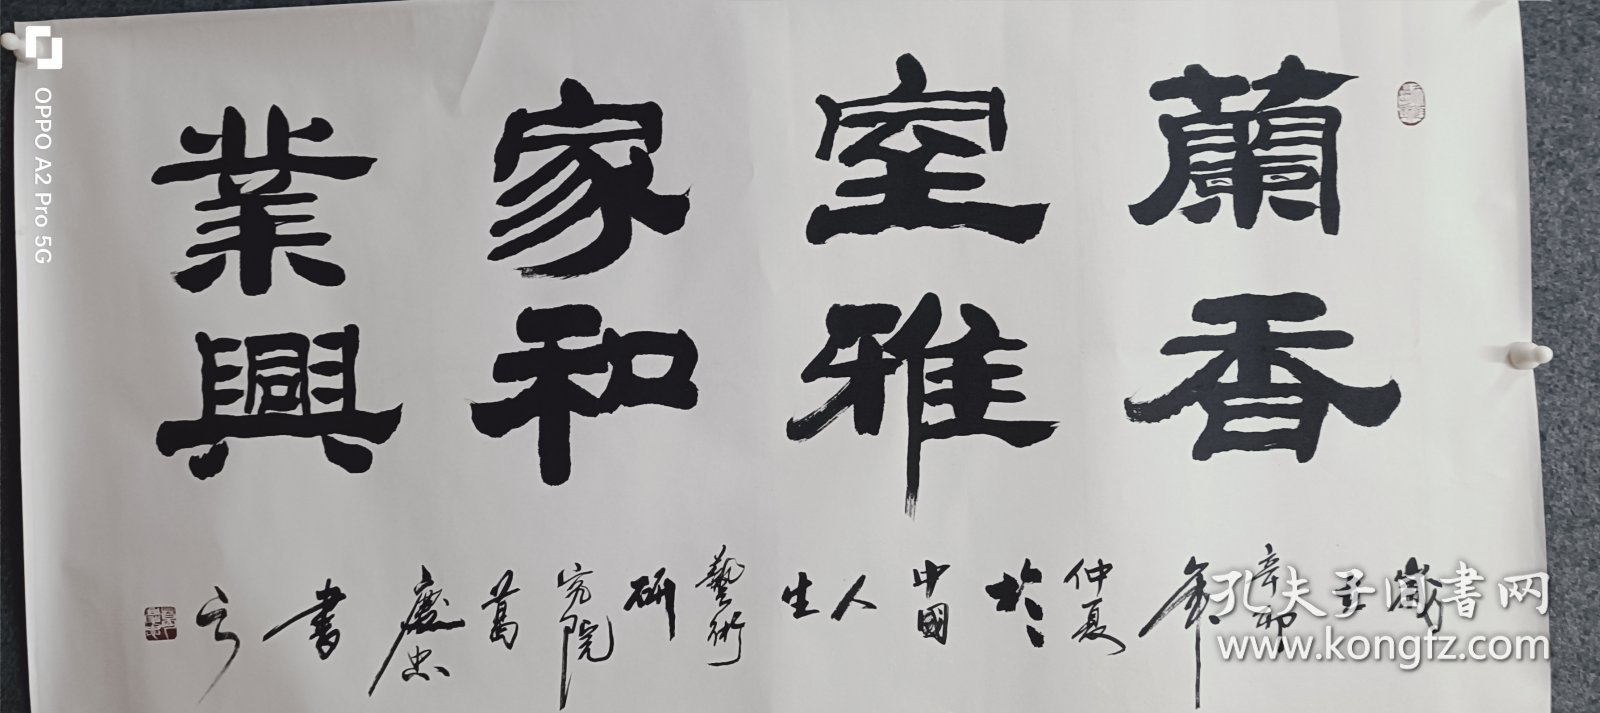 蘭香
室雅
家和
業興
歲
辛卯
年
仲夏
於
中國
人
生
藝術
研
究院
葛
慶忠
書
OPPO A2 Pro 5G
孔夫子旧书网
www.kongfz.com